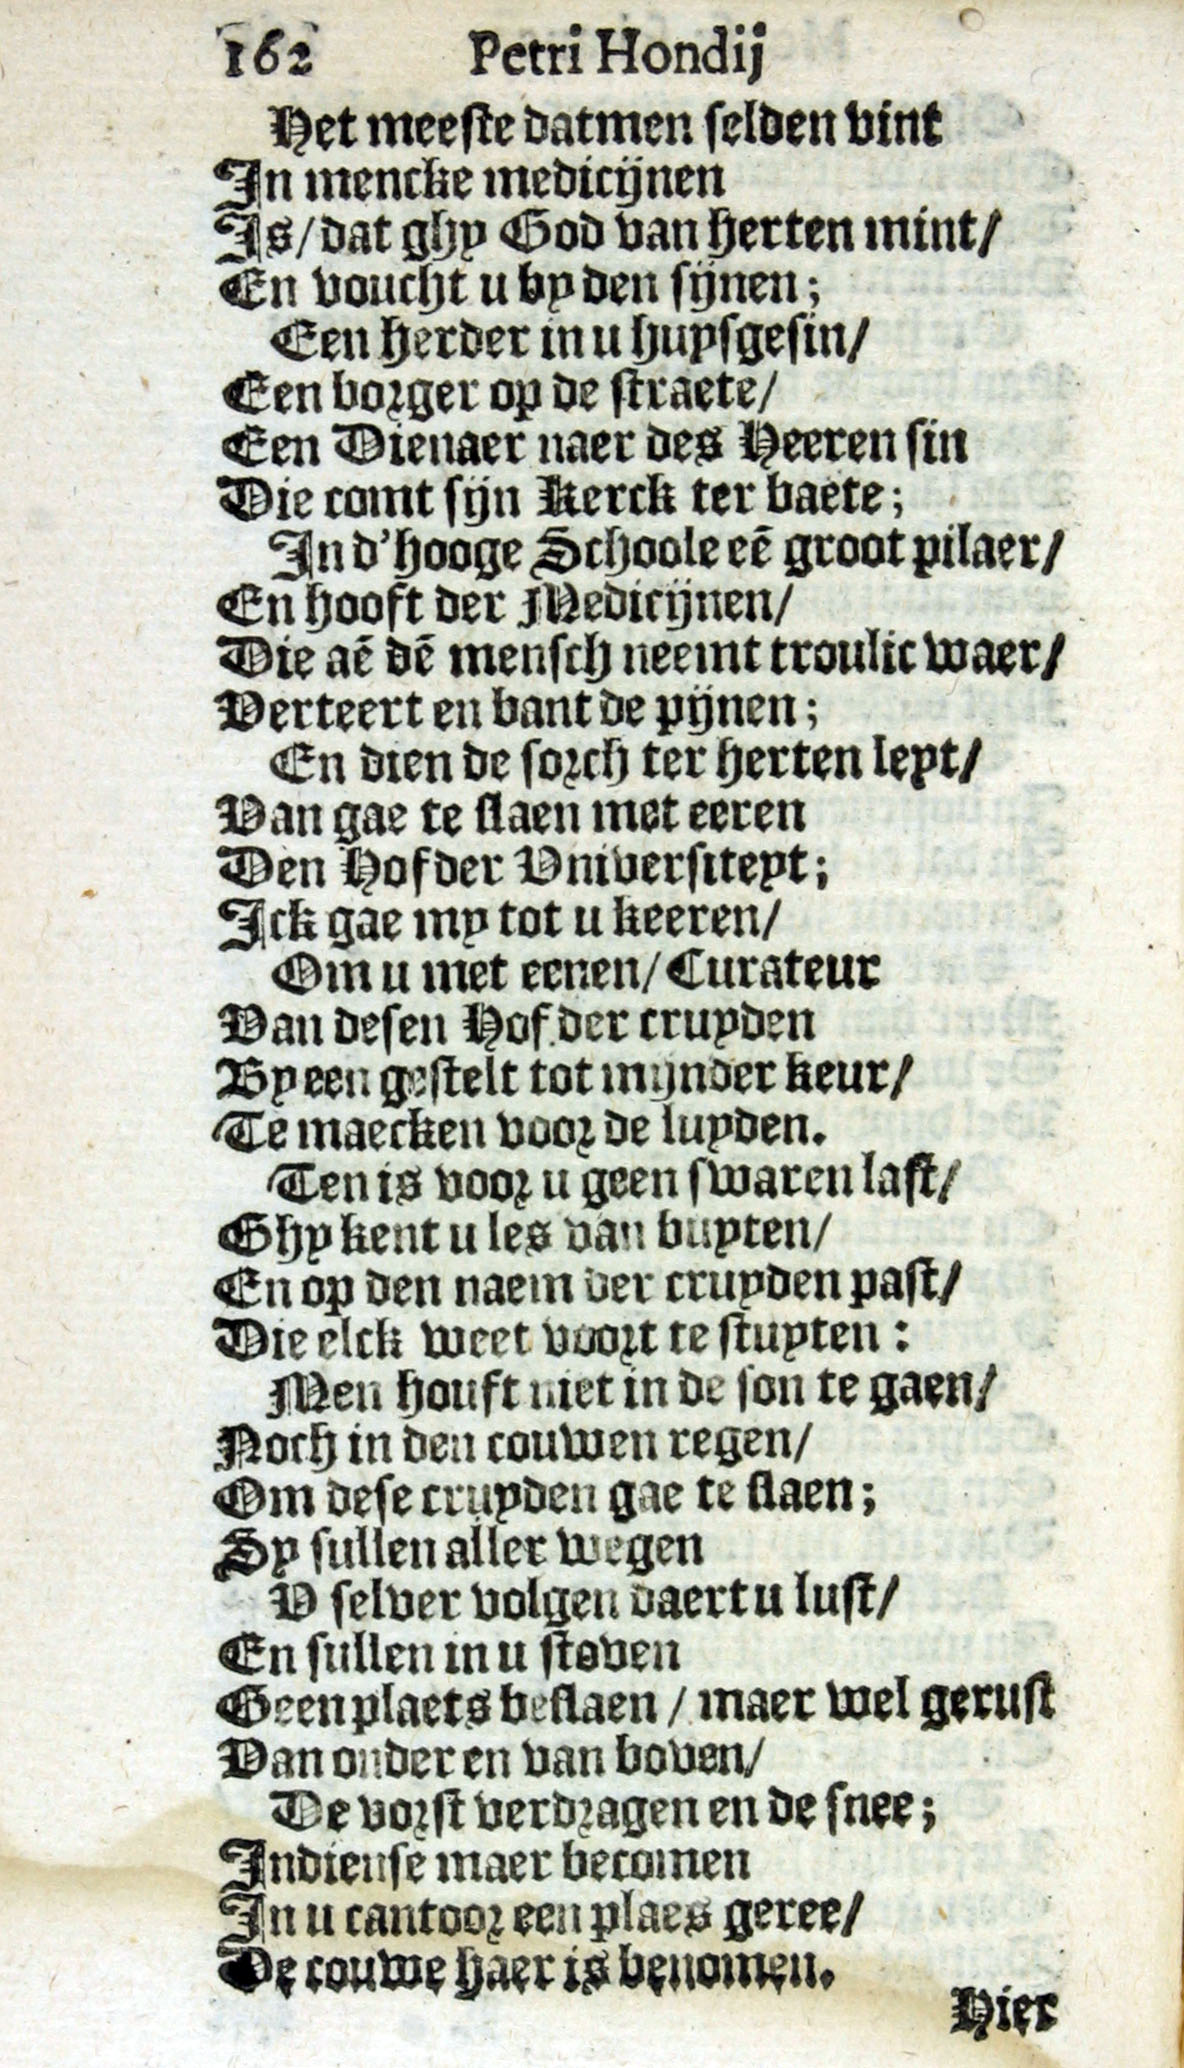 162 Petri Hondij
Het meeste datmen selden vint
In mencke medicijnen
Is/ dat ghy God van herten mint/
En voucht u by den sijnen;
Een herder in u huysgesin/
Een borger op de straete/
Een Dienaer naer des Heeren sin
Die comt sijn Kerck ter baete;
In d'hooge Schoole eē groot pilaer/
En hooft der Medicijnen/
Die aē dē mensch neemt troulic waer/
Verteert en bant de pijnen;
En dien de sorch ter herten leyt/
Van gae te slaen met eeren
Den Hof der Vniversiteyt;
Ick gae my tot u keeren/
Om u met eenen/ Curateur
Van desen Hof der cruyden
By een gestelt tot mijnder keur/
Te maecken voor de luyden.
Ten is voor u geen swaren last/
Ghy kent u les van buyten/
En op den naem der cruyden past/
Die elck weet voort te stuyten:
Men houft niet in de son te gaen/
Noch in den couwen regen/
Om dese cruyden gae te slaen;
Sy sullen aller wegen
V selver volgen daert u lust/
En sullen in u stoven
Geen plaets beslaen / maer wel gerust
Van onder en van boven/
De vorst verdragen en de snee;
Indiense maer becomen
In u cantoor een plaes geree/
De couwe haer is benomen.
Hier